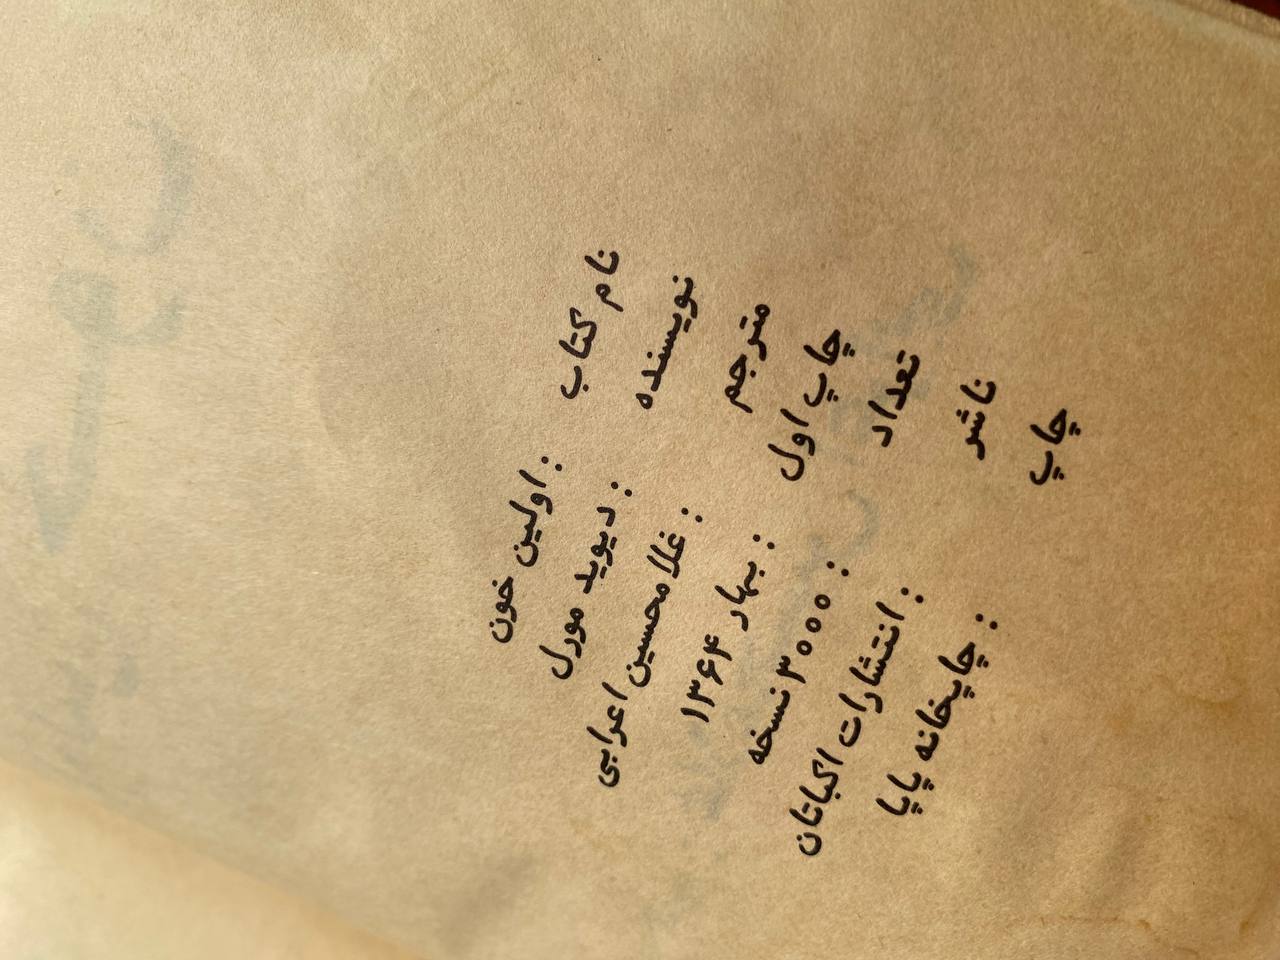 نام کتاب : اولین خون
نویسنده : دیوید مورل
مترجم : غلامحسین اعرابی
چاپ اول : بهار ۱۳۶۴
تعداد : ۳۰۰۰ نسخه
ناشر : انتشارات اکباتان
چاپ : چاپخانه پاپا